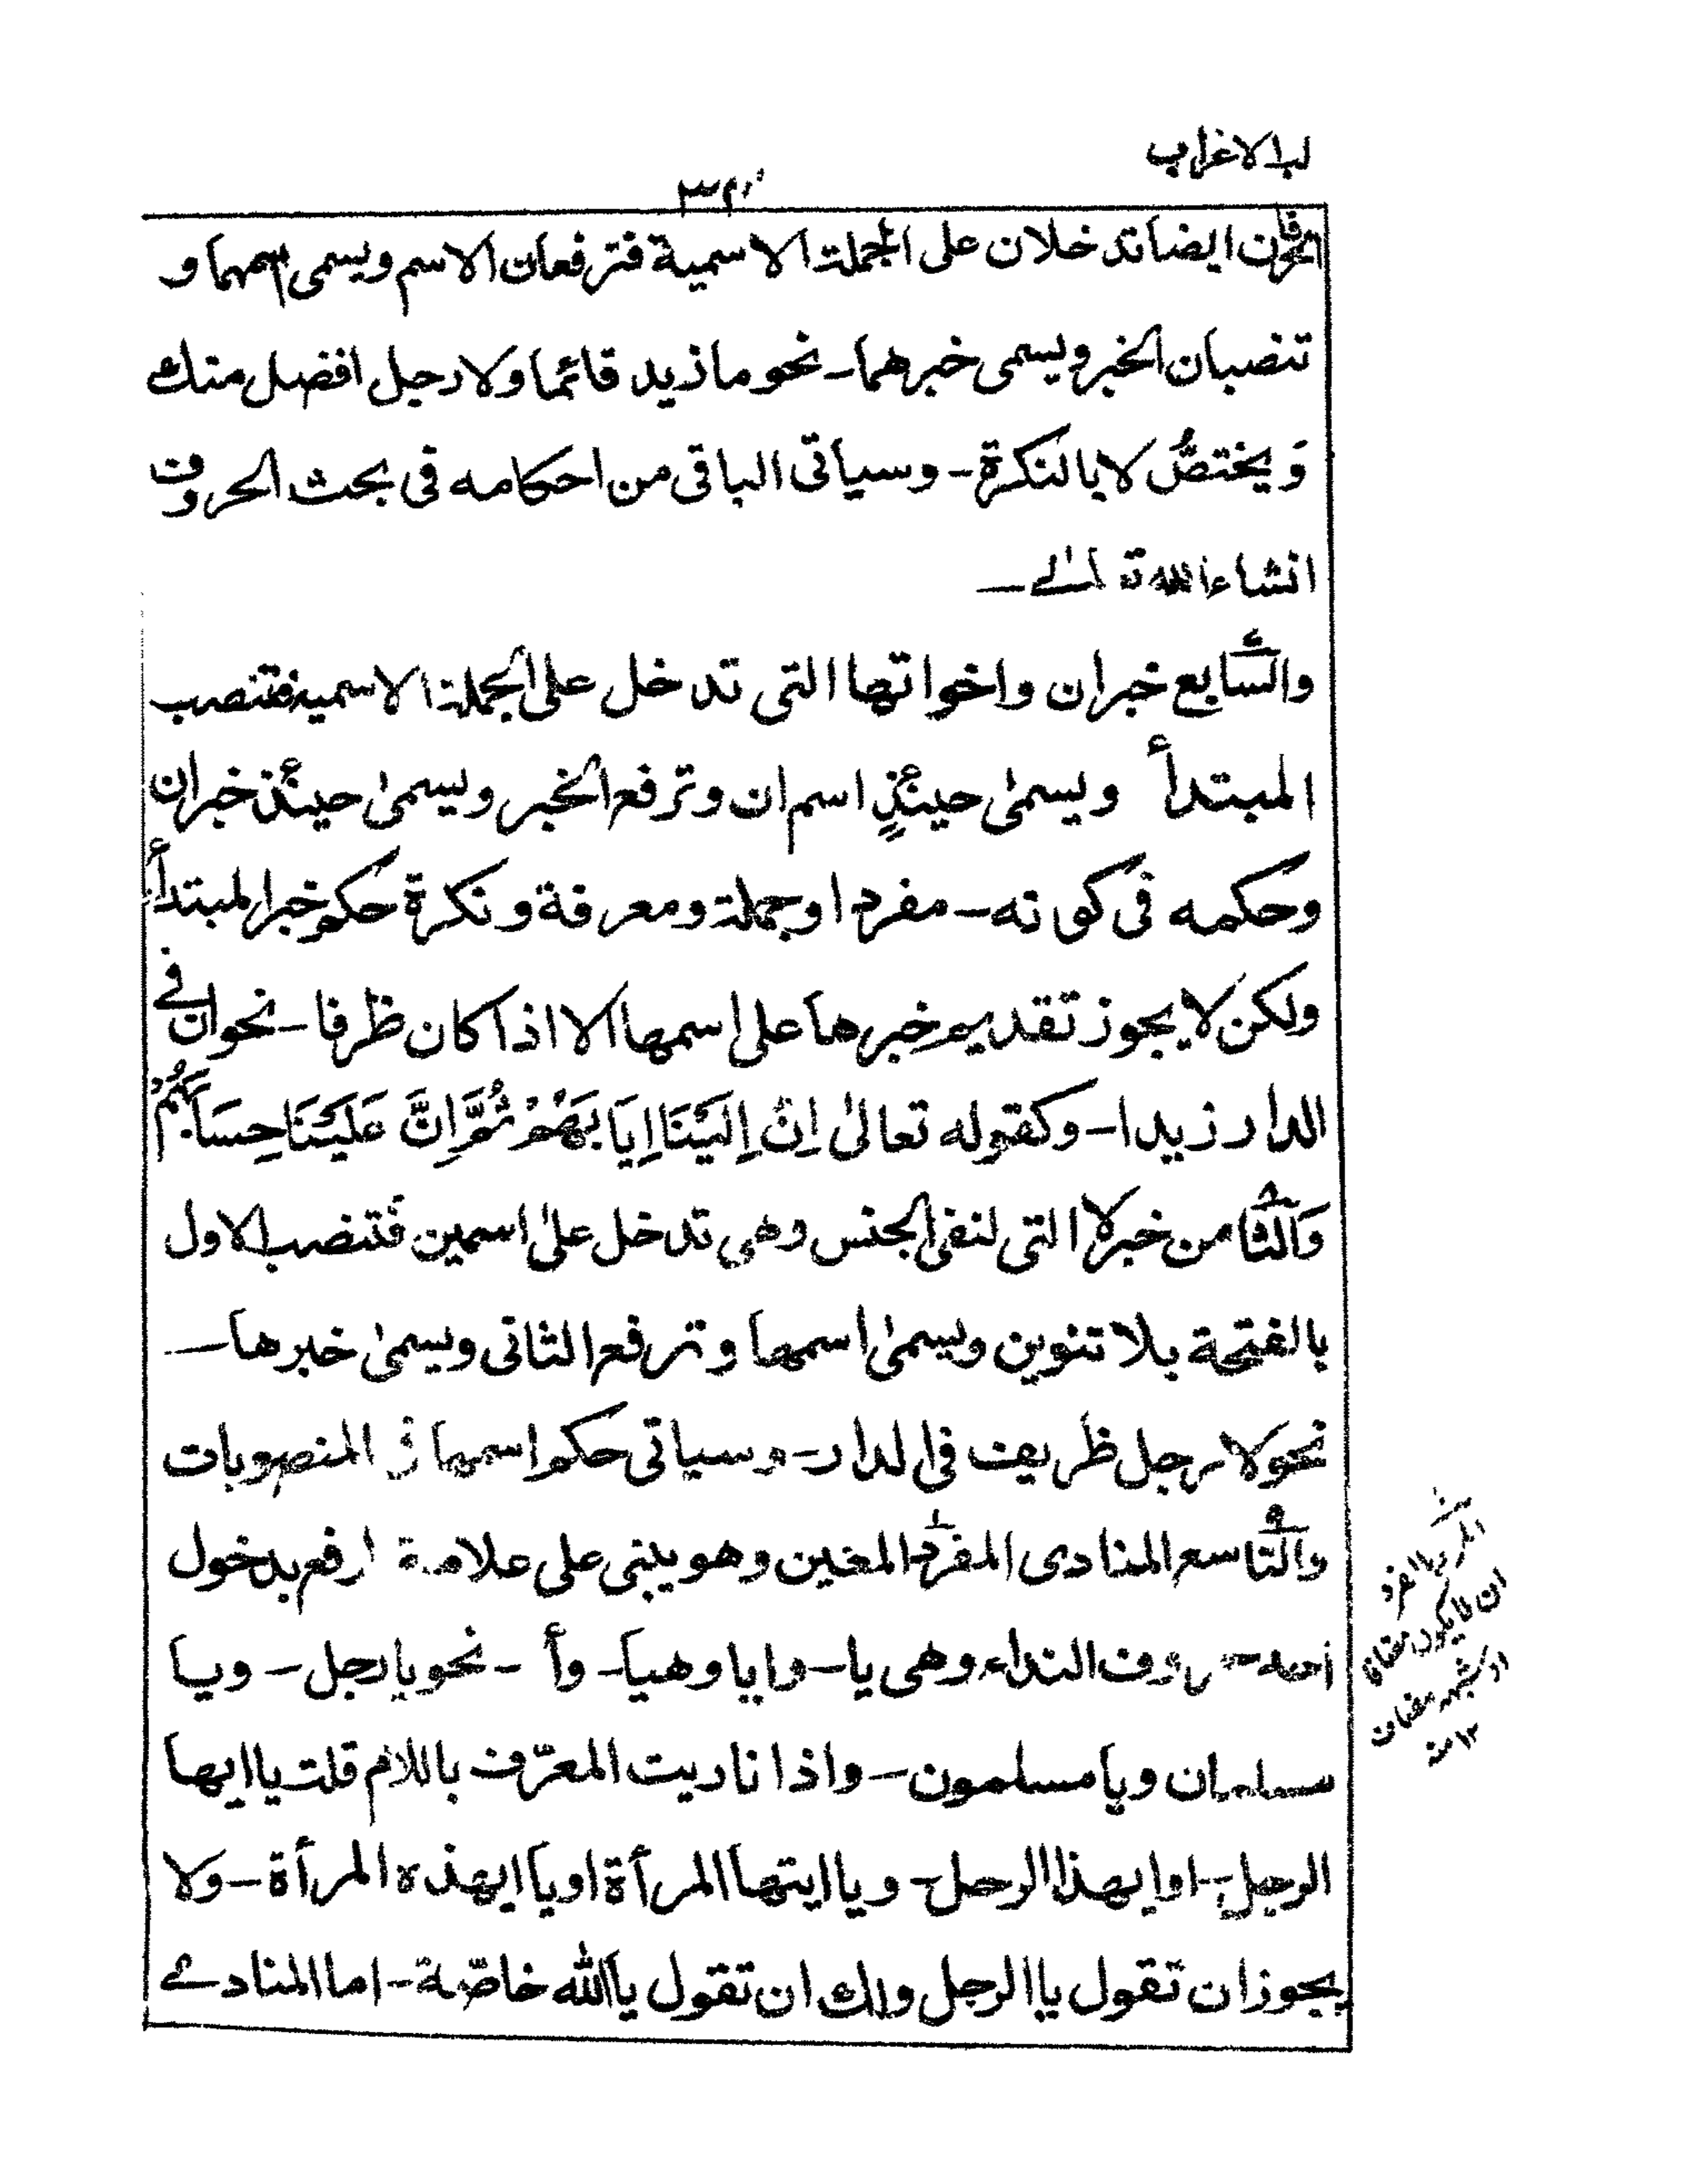 لب الاعراب
٣٤
حرفان ايضا تدخلان على الجملة الاسمية فترفعان الاسم ويسمى اسمهما و
تنصبان الخبر ويسمى خبرهما - نحو ما زيد قائما ولا رجل افضل منك
وَيختصُّ لا بالنكرة - وسياتى الباقى من احكامه فى بحث الحروف
انشاء الله تعالے -
والسابع خبر ان واخواتها التى تدخل على الجملة الاسمية فتنصب
المبتدأ ويسمىٰ حينئذٍ اسم ان وترفع الخبر ويسمىٰ حينئذ خبر ان
وحكمه فى كونه - مفردا وجملة ومعرفة ونكرة حكم خبر المبتدأ
ولكن لا يجوز تقديم خبرها على اسمها الا اذا كان ظرفا - نحو ان فے
الدار زيدا - وكقوله تعالىٰ اِنَّ اِلَيْنَا اِيَابَهُمْ ثُمَّ اِنَّ عَلَيْنَا حِسَابَهُمْ
وَالثامن خبر لا التى لنفى الجنس وهى تدخل علىٰ اسمين فتنصب الاول
بالفتحة بلا تنوين ويسمىٰ اسمها وترفع الثانى ويسمىٰ خبرها -
نحو لا رجل ظريف فى الدار - وسياتى حكم اسمها فى المنصوبات
والتاسع المنادى المفرد المعين وهو يبنى على علامة الرفع بدخول
احد حروف النداء وهى يا - وايا وهيا - وأ - نحو يا رجل - ويا
مسلمان ويا مسلمون - واذا ناديت المعرّف باللام قلت يا ايها
الرجل - او ايهذا الرجل - ويا ايتها المرأة او يا ايهذه المرأة - ولا
يجوز ان تقول يا الرجل ولك ان تقول يا الله خاصّة - اما المنادے
المفرد
ان لا يكون مضافا
او شبه مضاف
١٢ منه